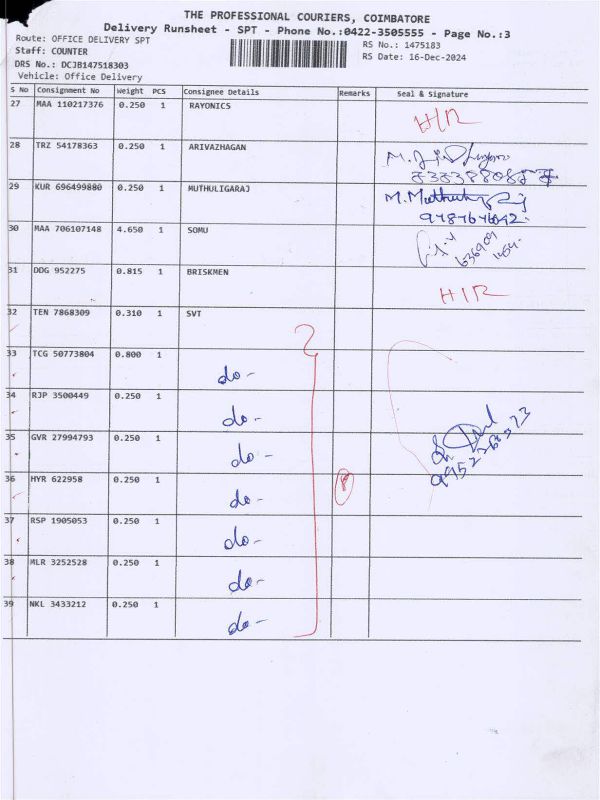 THE PROFESSIONAL COURIERS, COIMBATORE
Delivery Runsheet - SPT - Phone No.:0422-3505555 - Page No.:3
Route: OFFICE DELIVERY SPT
RS No.: 1475183
Staff: COUNTER
RS Date: 16-Dec-2024
DRS No.: DCJB147518303
Vehicle: Office Delivery
S No Consignment No Weight PCS Consignee Details Remarks Seal & Signature
27 MAA 110217376 0.250 1 RAYONICS H/R
28 TRZ 54178363 0.250 1 ARIVAZHAGAN
29 KUR 696499880 0.250 1 MUTHULIGARAJ
30 MAA 706107148 4.650 1 SOMU
31 DDG 952275 0.815 1 BRISKMEN H/R
32 TEN 7868309 0.310 1 SVT
33 TCG 50773804 0.800 1 do-
34 RJP 3500449 0.250 1 do-
35 GVR 27994793 0.250 1 do-
36 HYR 622958 0.250 1 do-
37 RSP 1905053 0.250 1 do-
38 MLR 3252528 0.250 1 do-
39 NKL 3433212 0.250 1 do-